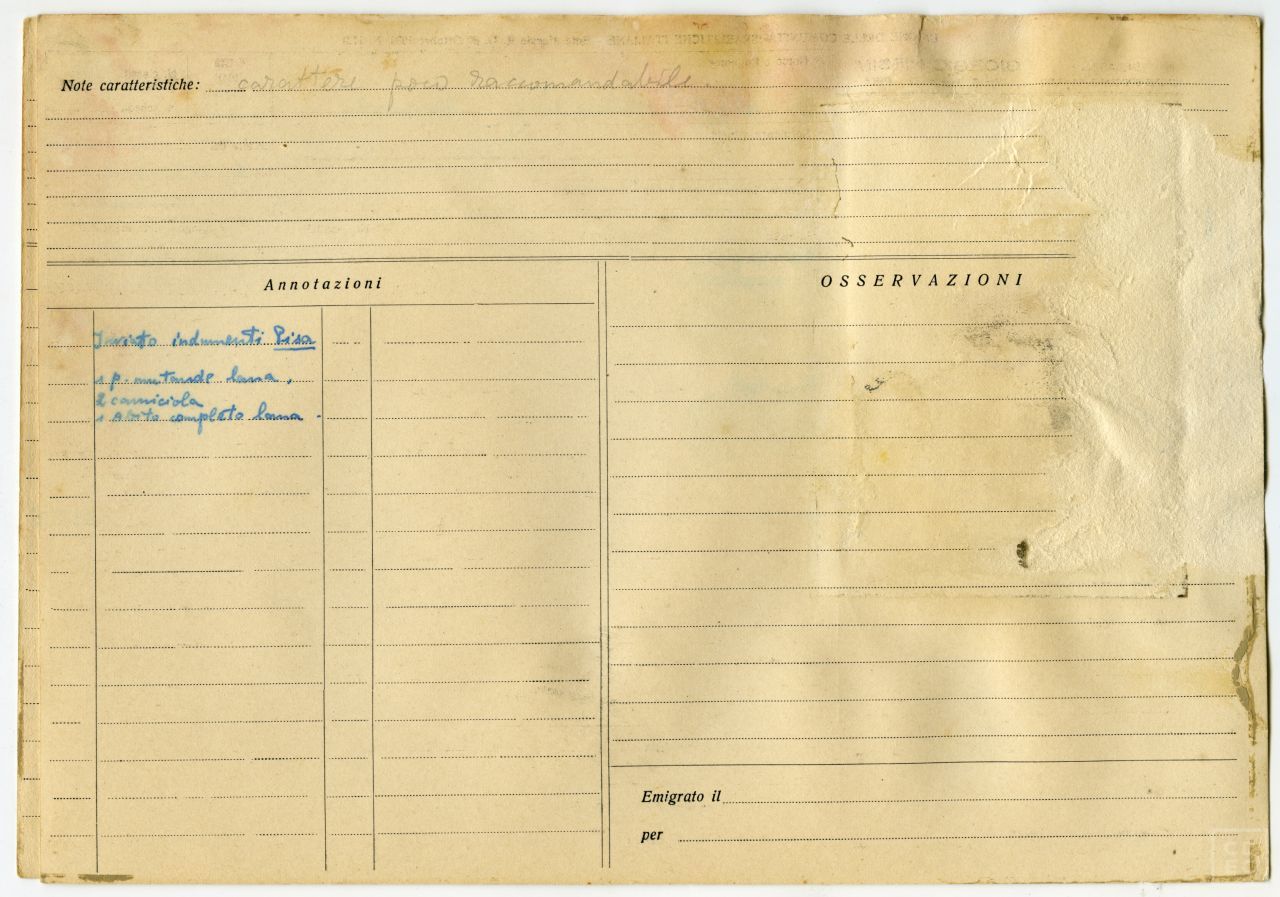 Note caratteristiche: carattere poco raccomandabile.
Annotazioni
Inviato indumenti Pisa
1 p. mutande lana,
2 camiciola
1 Abito completo lana.
OSSERVAZIONI
Emigrato il
per